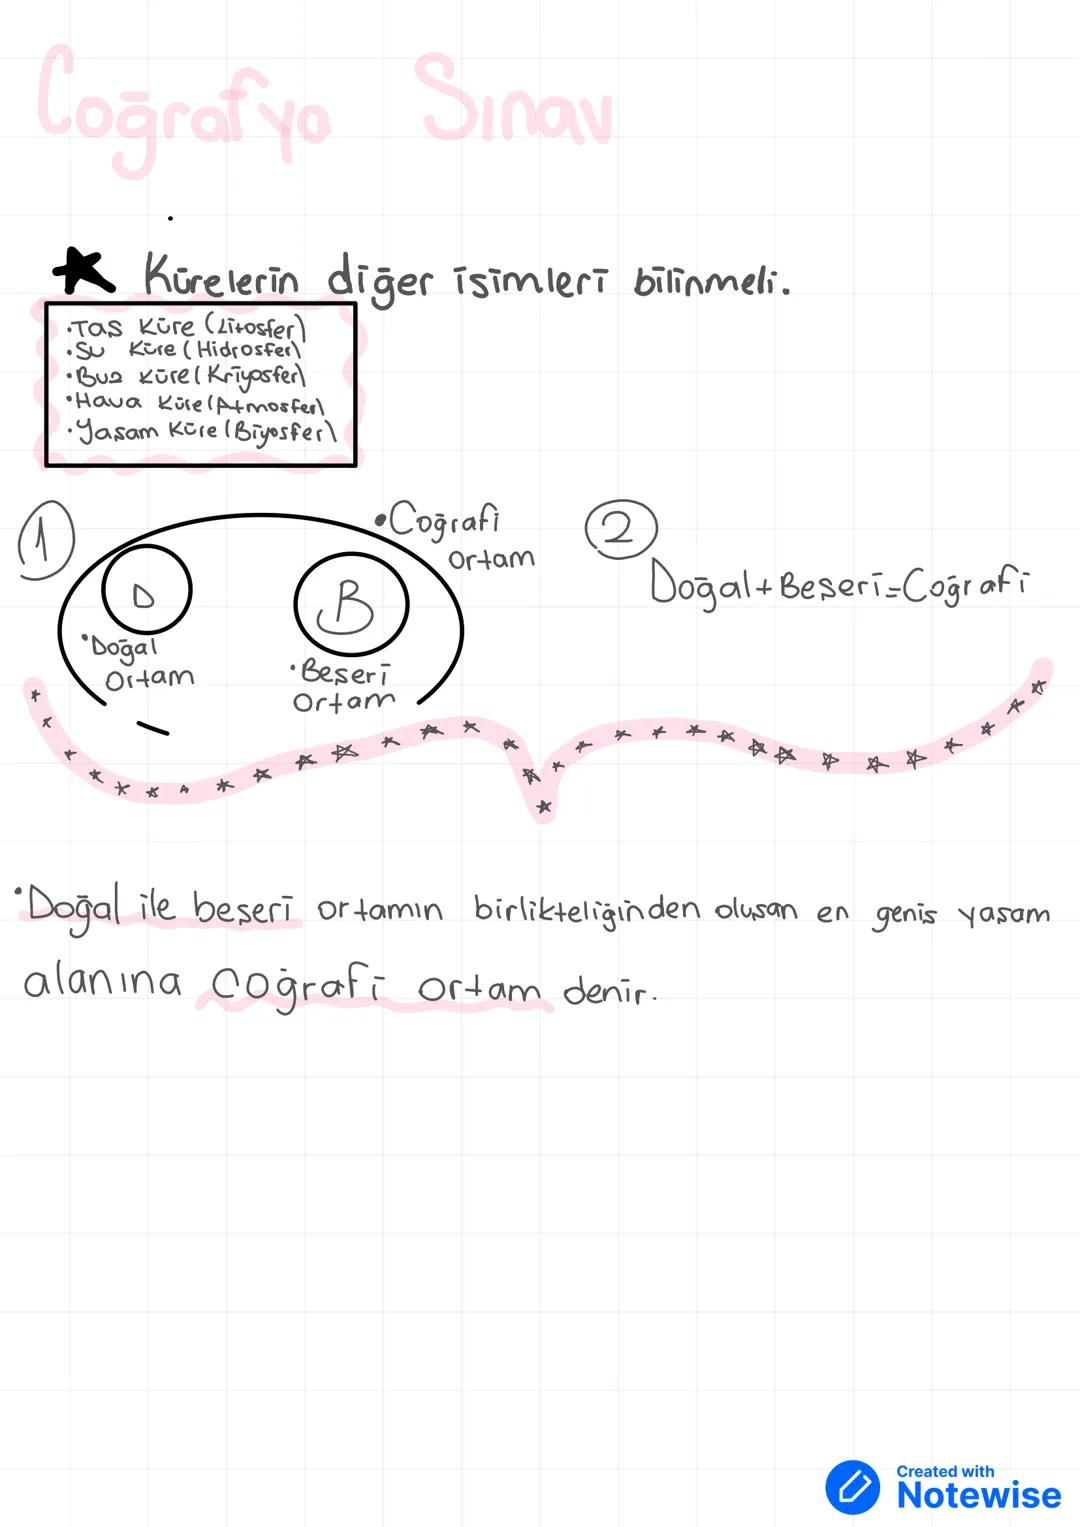 Coğrafya Sınav
Kürelerin diğer isimleri bilinmeli.
•Taş Küre (Litosfer)
•Su Küre (Hidrosfer)
•Buz Küre (Kriyosfer)
•Hava Küre (Atmosfer)
•Yaşam Küre (Biyosfer)
1
•Coğrafi
Ortam
D
B
•Doğal
Ortam
•Beşeri
Ortam
2
Doğal+Beşeri=Coğrafi
•Doğal ile beşeri ortamın birlikteliğinden oluşan en geniş yaşam
alanına Coğrafi ortam denir.
Created with
Notewise